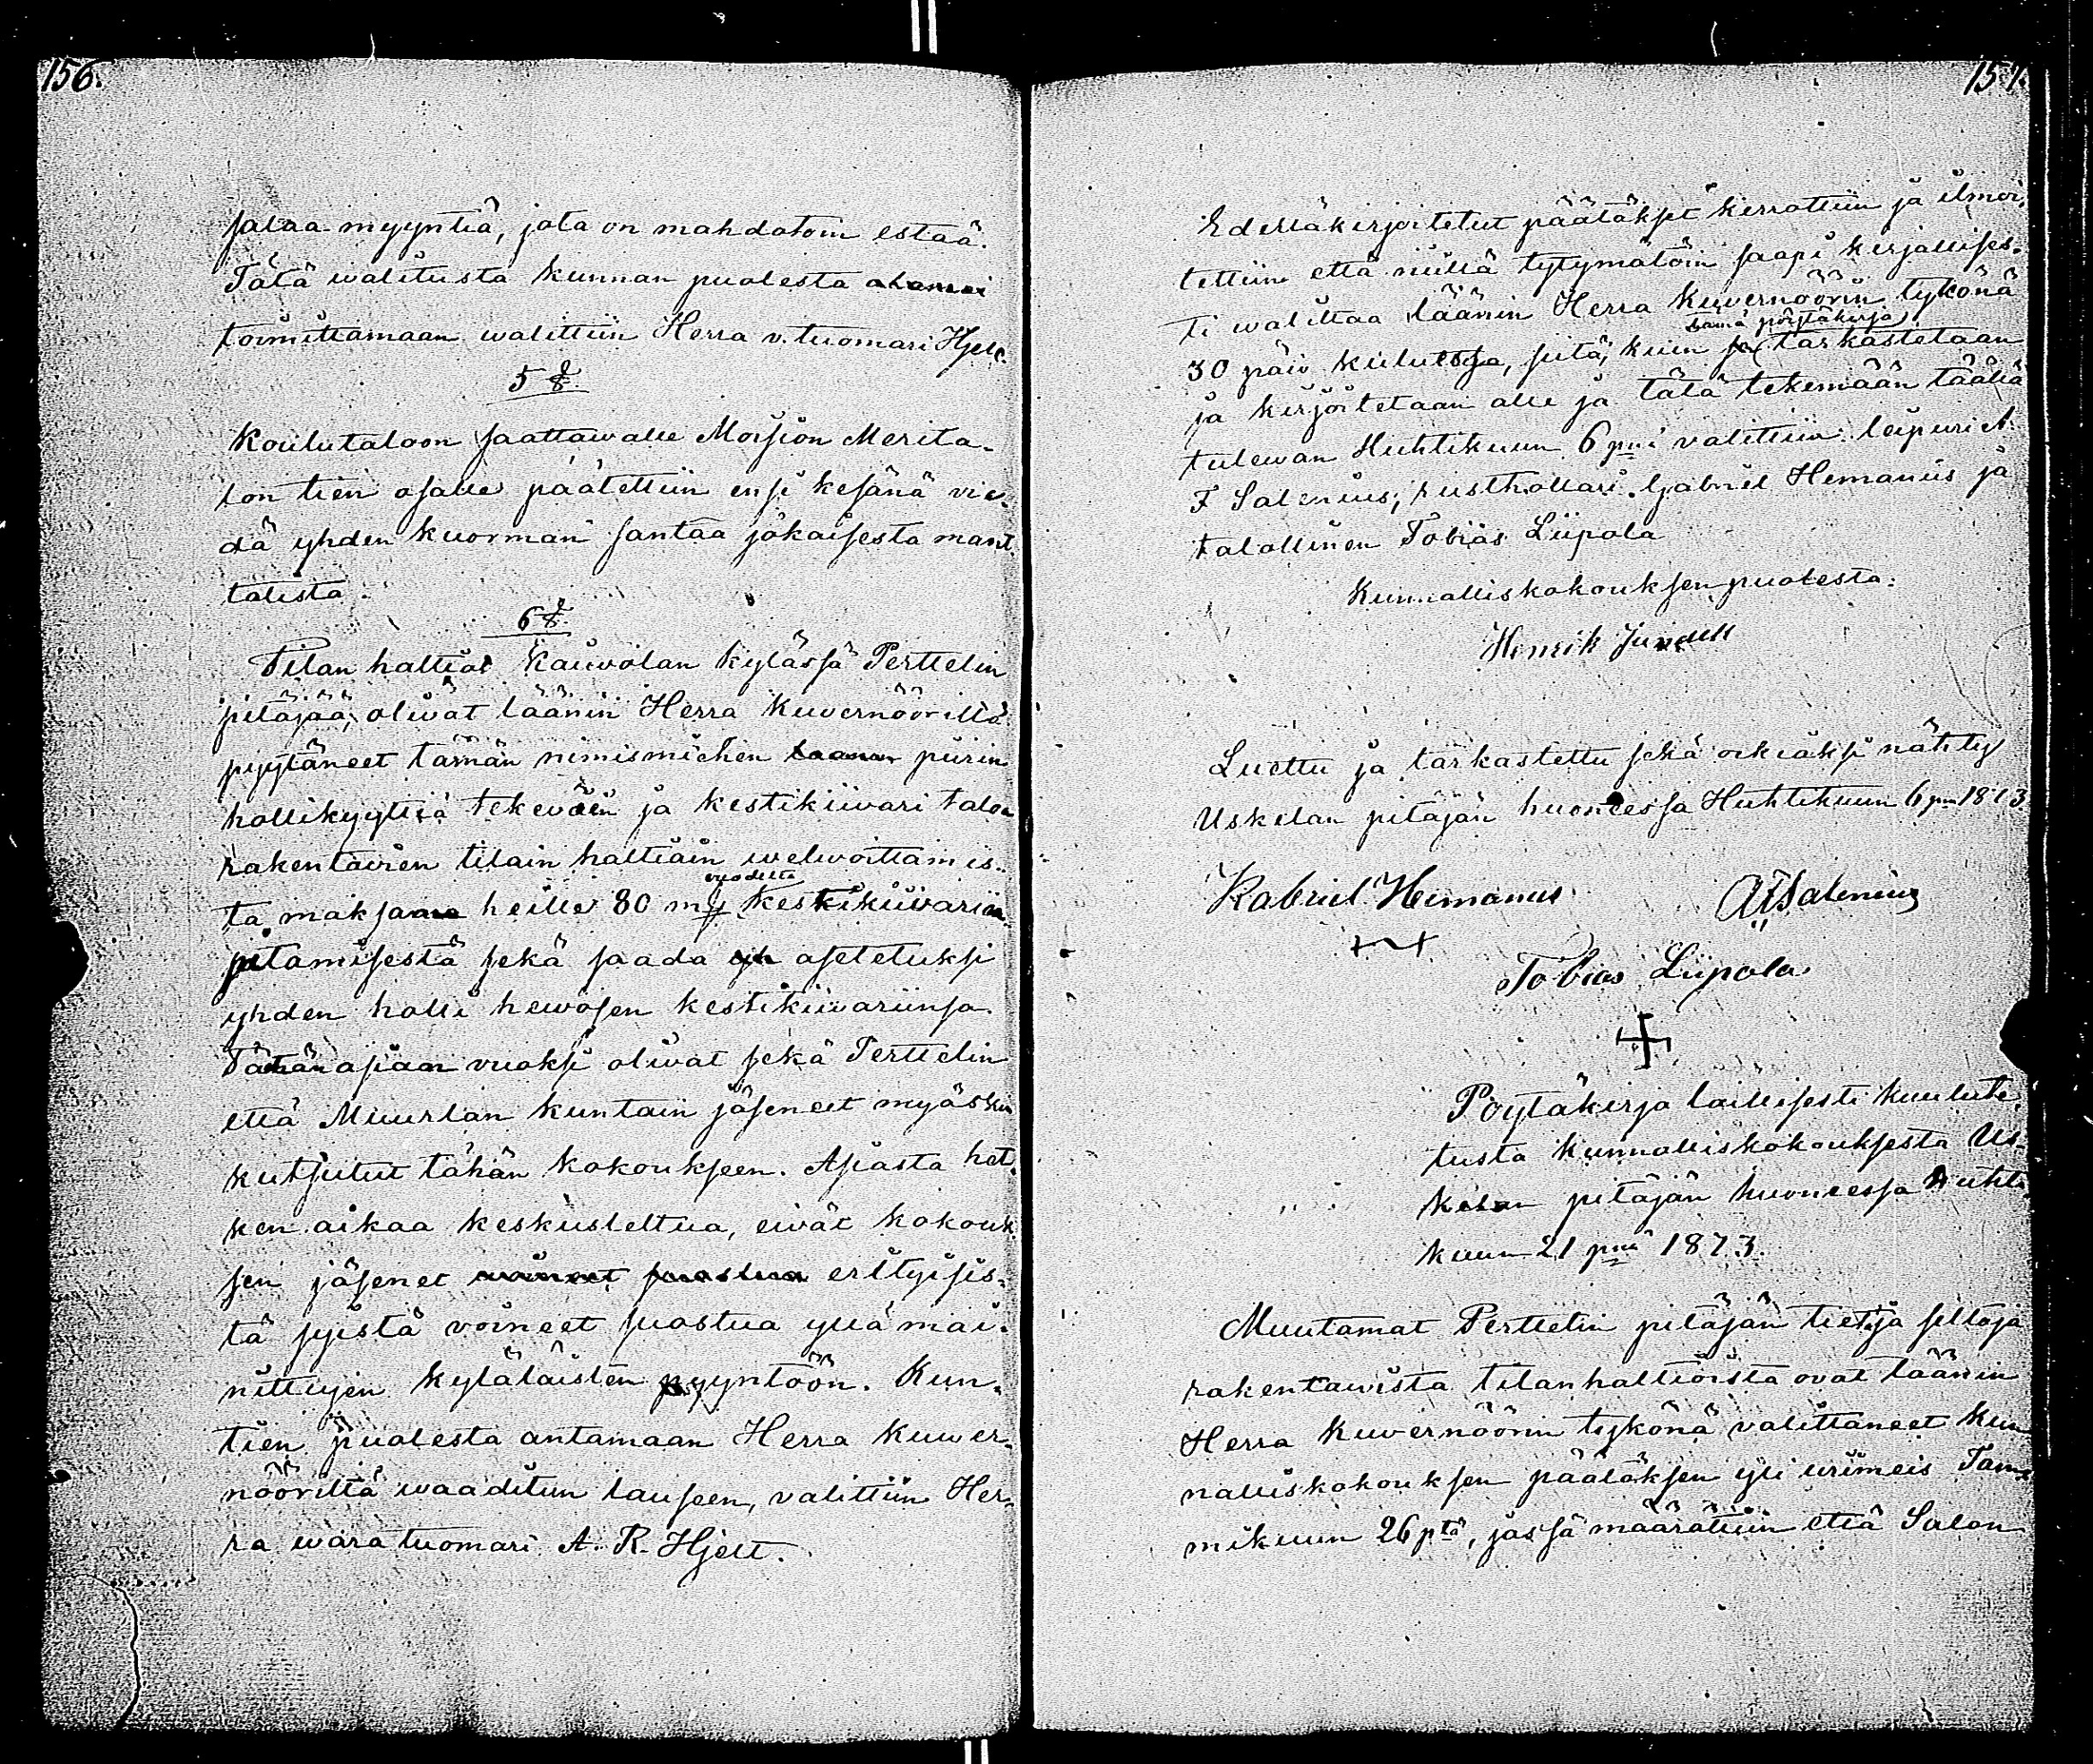 156.
salaa myyntiä, jota on mahdotoin estää.
Tätä walitusta kunnan puolesta
toimittamaan walittiin Herra v. tuomari Hjelt.
5 §.
Koulutaloon saattawalle Moision Merita-
lon tien osalle päätettiin ensi kesänä vie-
dä yhden kuorman santaa jokaisesta mant-
talista.
6 §.
Tilan haltiat Kaiwolan kylässä Perttelin
pitäjää, oliwat läänin Herra Kuvernöörillä
pyytäneet tämän nimismiehen piirin
hollikyytiä tekeväin ja kestikiiwari taloa
rakentavien tilain haltiain welwoittamis-
vuodelta
ta maksamaan heille 80 mk kestikiiwarin
pitämisestä sekä saada asetetuksi
yhden holli hewosen kestikiiwariinsa.
Tämän asian vuoksi oliwat sekä Perttelin
että Muurlan kuntain jäsenet myöskin
kutsutut tähän kokoukseen. Asiasta het-
ken aikaa keskusteltua, eiwät kokouk-
sen jäsenet erityisis-
tä syistä voineet suostua yllä mai-
nittujen kyläläisten pyyntöön. Kun-
tien puolesta antamaan Herra Kuwer-
nööriltä waaditun lauseen, valittiin Her-
ra waratuomari A. R. Hjelt.
157.
Edelläkirjoitetut päätökset kerrottiin ja ilmoi-
tettiin että niillä tytymätöin saapi kirjallises-
ti walittaa läänin Herra Kuvernöörin tykönä
tämä pöytäkirja
30 päiv kuluessa, siitä, kuin se tarkastetaan
ja kirjoitetaan alle ja tätä tekemään täällä
tulewan Huhtikuun 6 pnä valittiin leipuri A.
F Salenius, rusthollari Gabriel Hemanus ja
talollinen Tobias Liipola
Kunnalliskokouksen puolesta:
Henrik Jundell
Luettu ja tarkastettu sekä oikiaksi nähty
Uskelan pitäjän huoneessa Huhtikuun 6 pnä 1873
Kabriel Hemanus AFSalenius
Tobias Liipola
Pöytäkirja laillisesti kuulute-
tusta kunnalliskokouksesta Us-
kelan pitäjän huoneessa Huhti-
kuun 21 pnä 1873.
Muutamat Perttelin pitäjän tietä ja siltoja
rakentawista tilanhaltioista ovat läänin
Herra Kuvernöörin tykönä valittaneet kun
nalliskokouksen päätöksen yli wiimeis Tam-
mikuun 26 ptä, jossa määrättiin että Salon